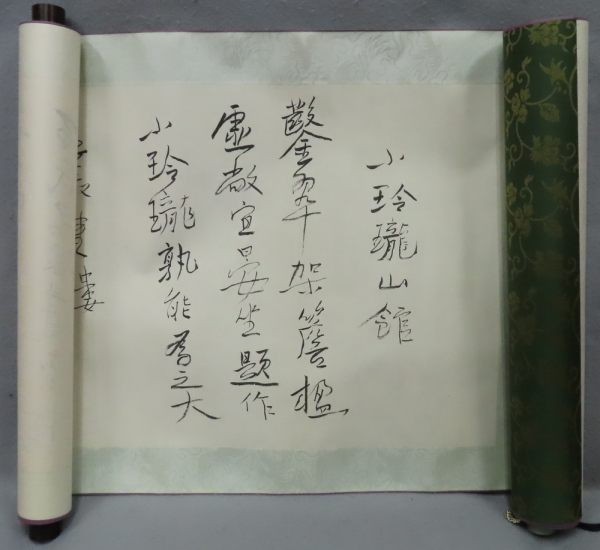 小玲瓏山館
鑿翠架簷楹
虛敞宜晏坐題作
小玲瓏孰能為之大